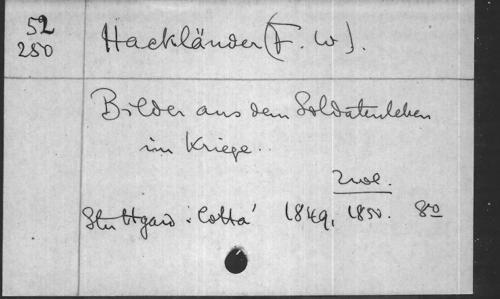 52
250
Hackländer (F. W).
Bilder aus dem Soldatenleben
im Kriege.
2 vol.
Stuttgard : Cotta 1849, 1850. 8º